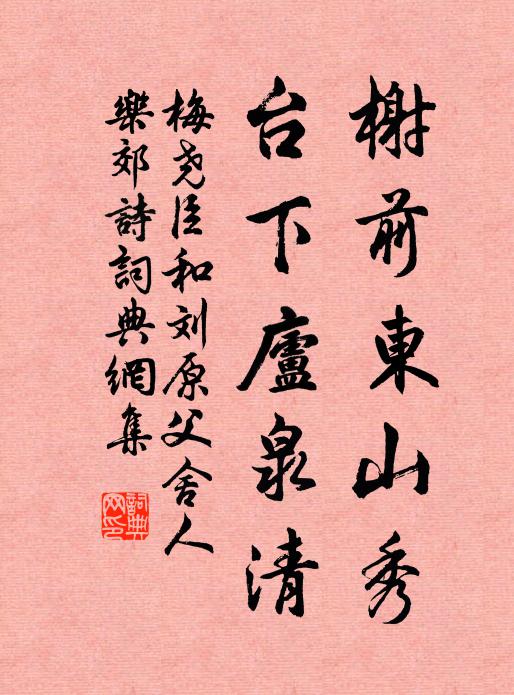 榭前東山秀
台下廬泉清
梅尧臣和刘原父舍人
樂郊詩詞典網集
詞典网印